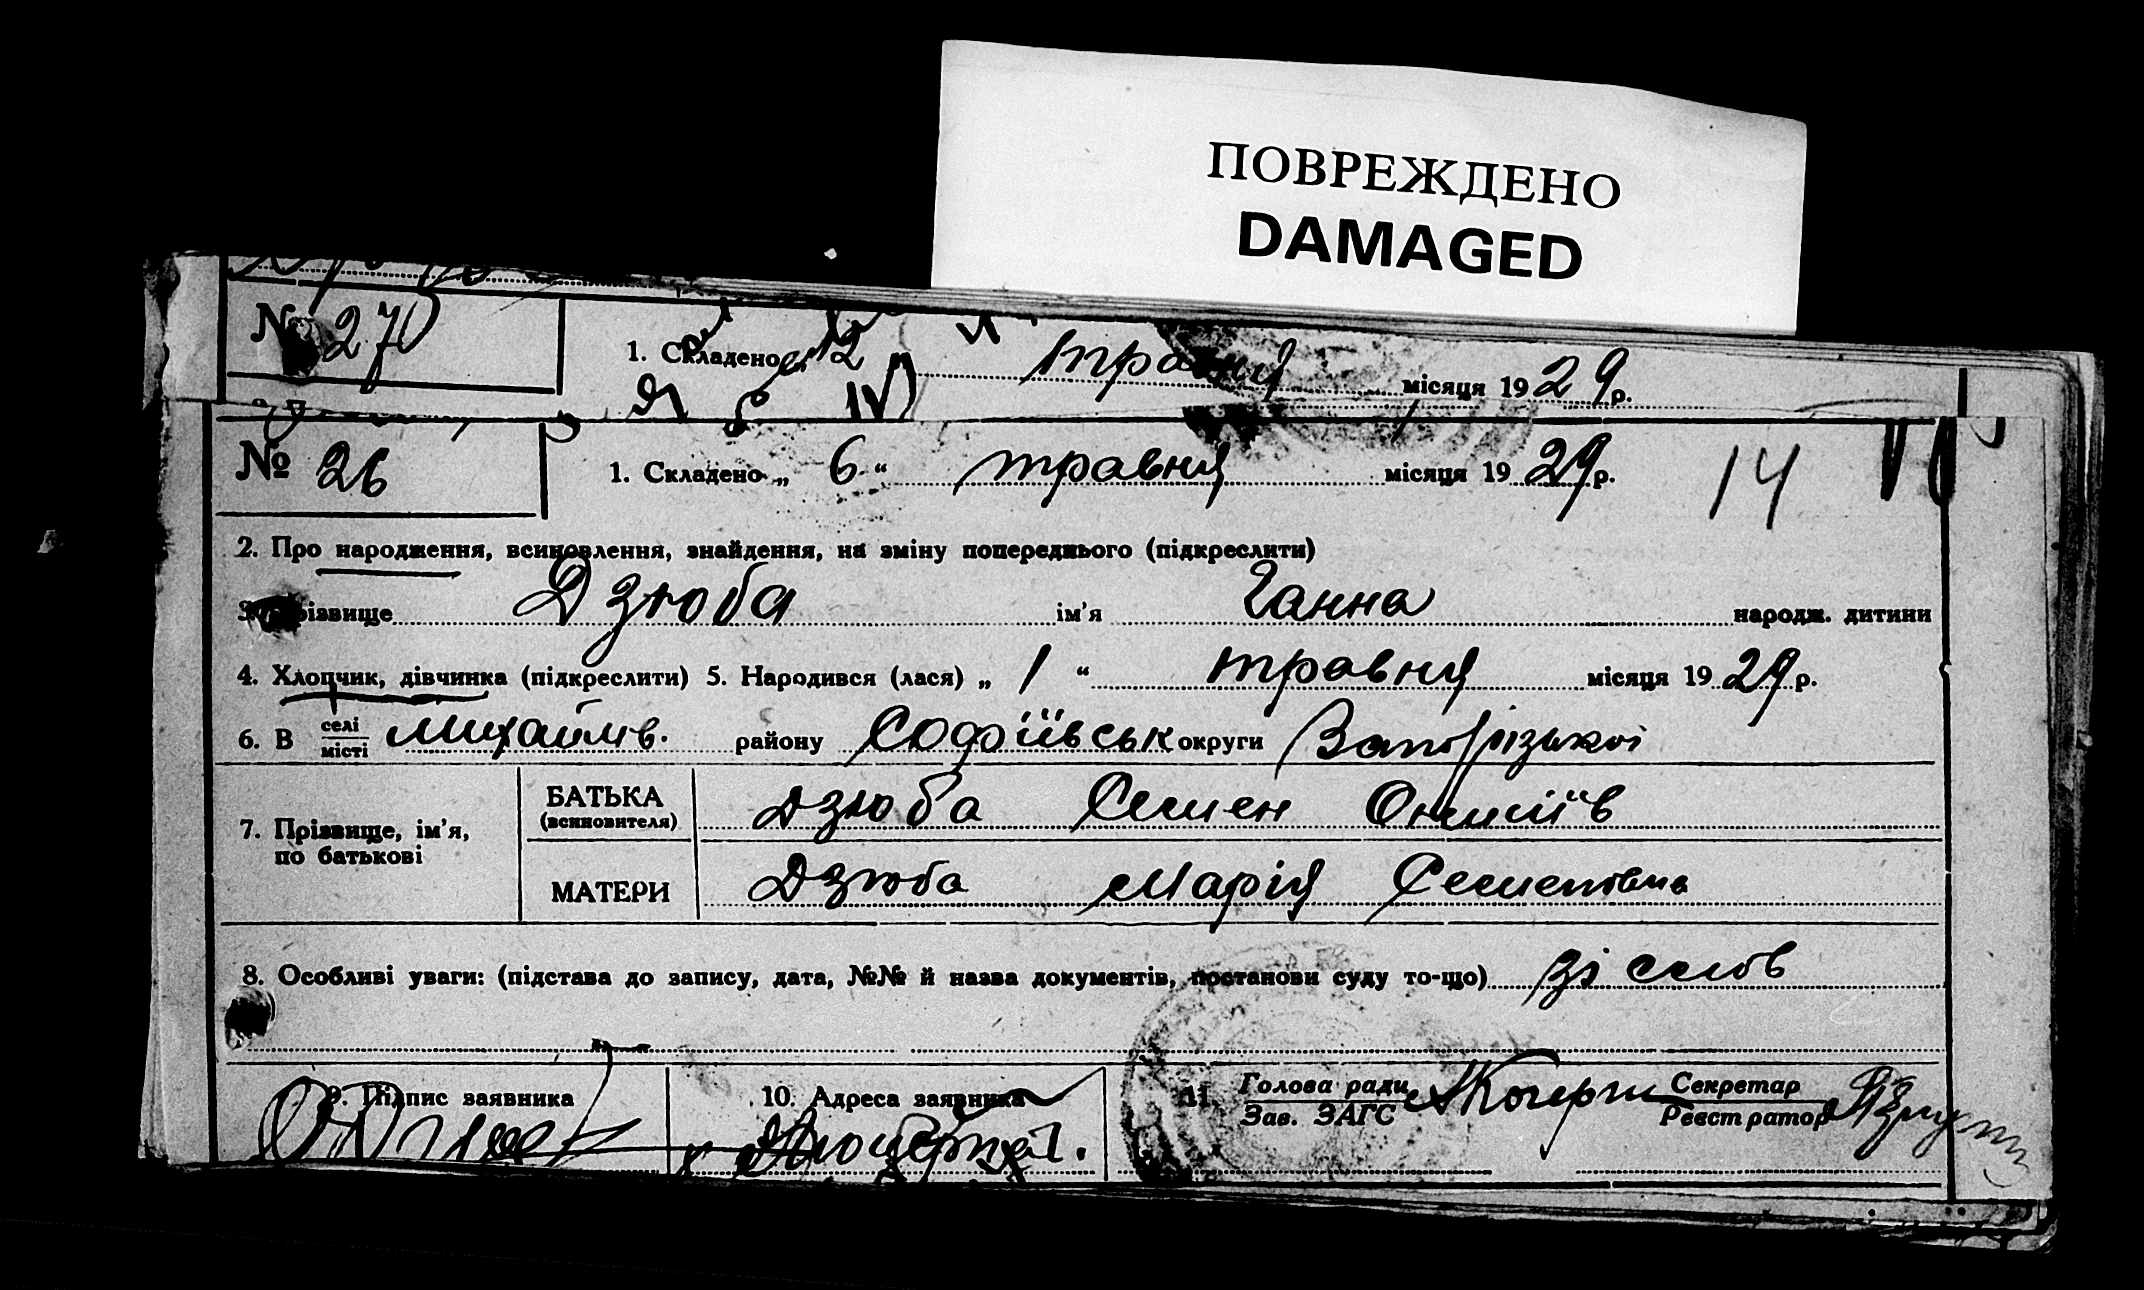 ПОВРЕЖДЕНО
DAMAGED
№ 270
1. Складено „ 12 травня місяця 1929 р.
№ 26
1. Складено „ 6 “ травня місяця 1929 р. 14
2. Про народження, всиновлення, знайдення, на зміну попереднього (підкреслити)
3. Прізвище Дзюба ім’я Ганна народж. дитини
4. Хлопчик, дівчинка (підкреслити) 5. Народився (лася) „ 1 “ травня місяця 1929 р.
6. В селі місті Михайлів. району Софіївськ округи Запорізької
7. Прізвище, ім’я, по батькові
БАТЬКА (всиновителя) Дзюба Семен
МАТЕРИ Дзюба Марія Семенівна
8. Особливі уваги: (підстава до запису, дата, №№ й назва документів, постанови суду то-що) зі слов
9. Підпис заявника
10. Адреса заявника
11. Голова ради Зав. ЗАГС
Секретар Реєстратор